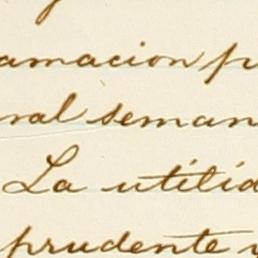 amacion p
ral seman
La utilid
prudente y